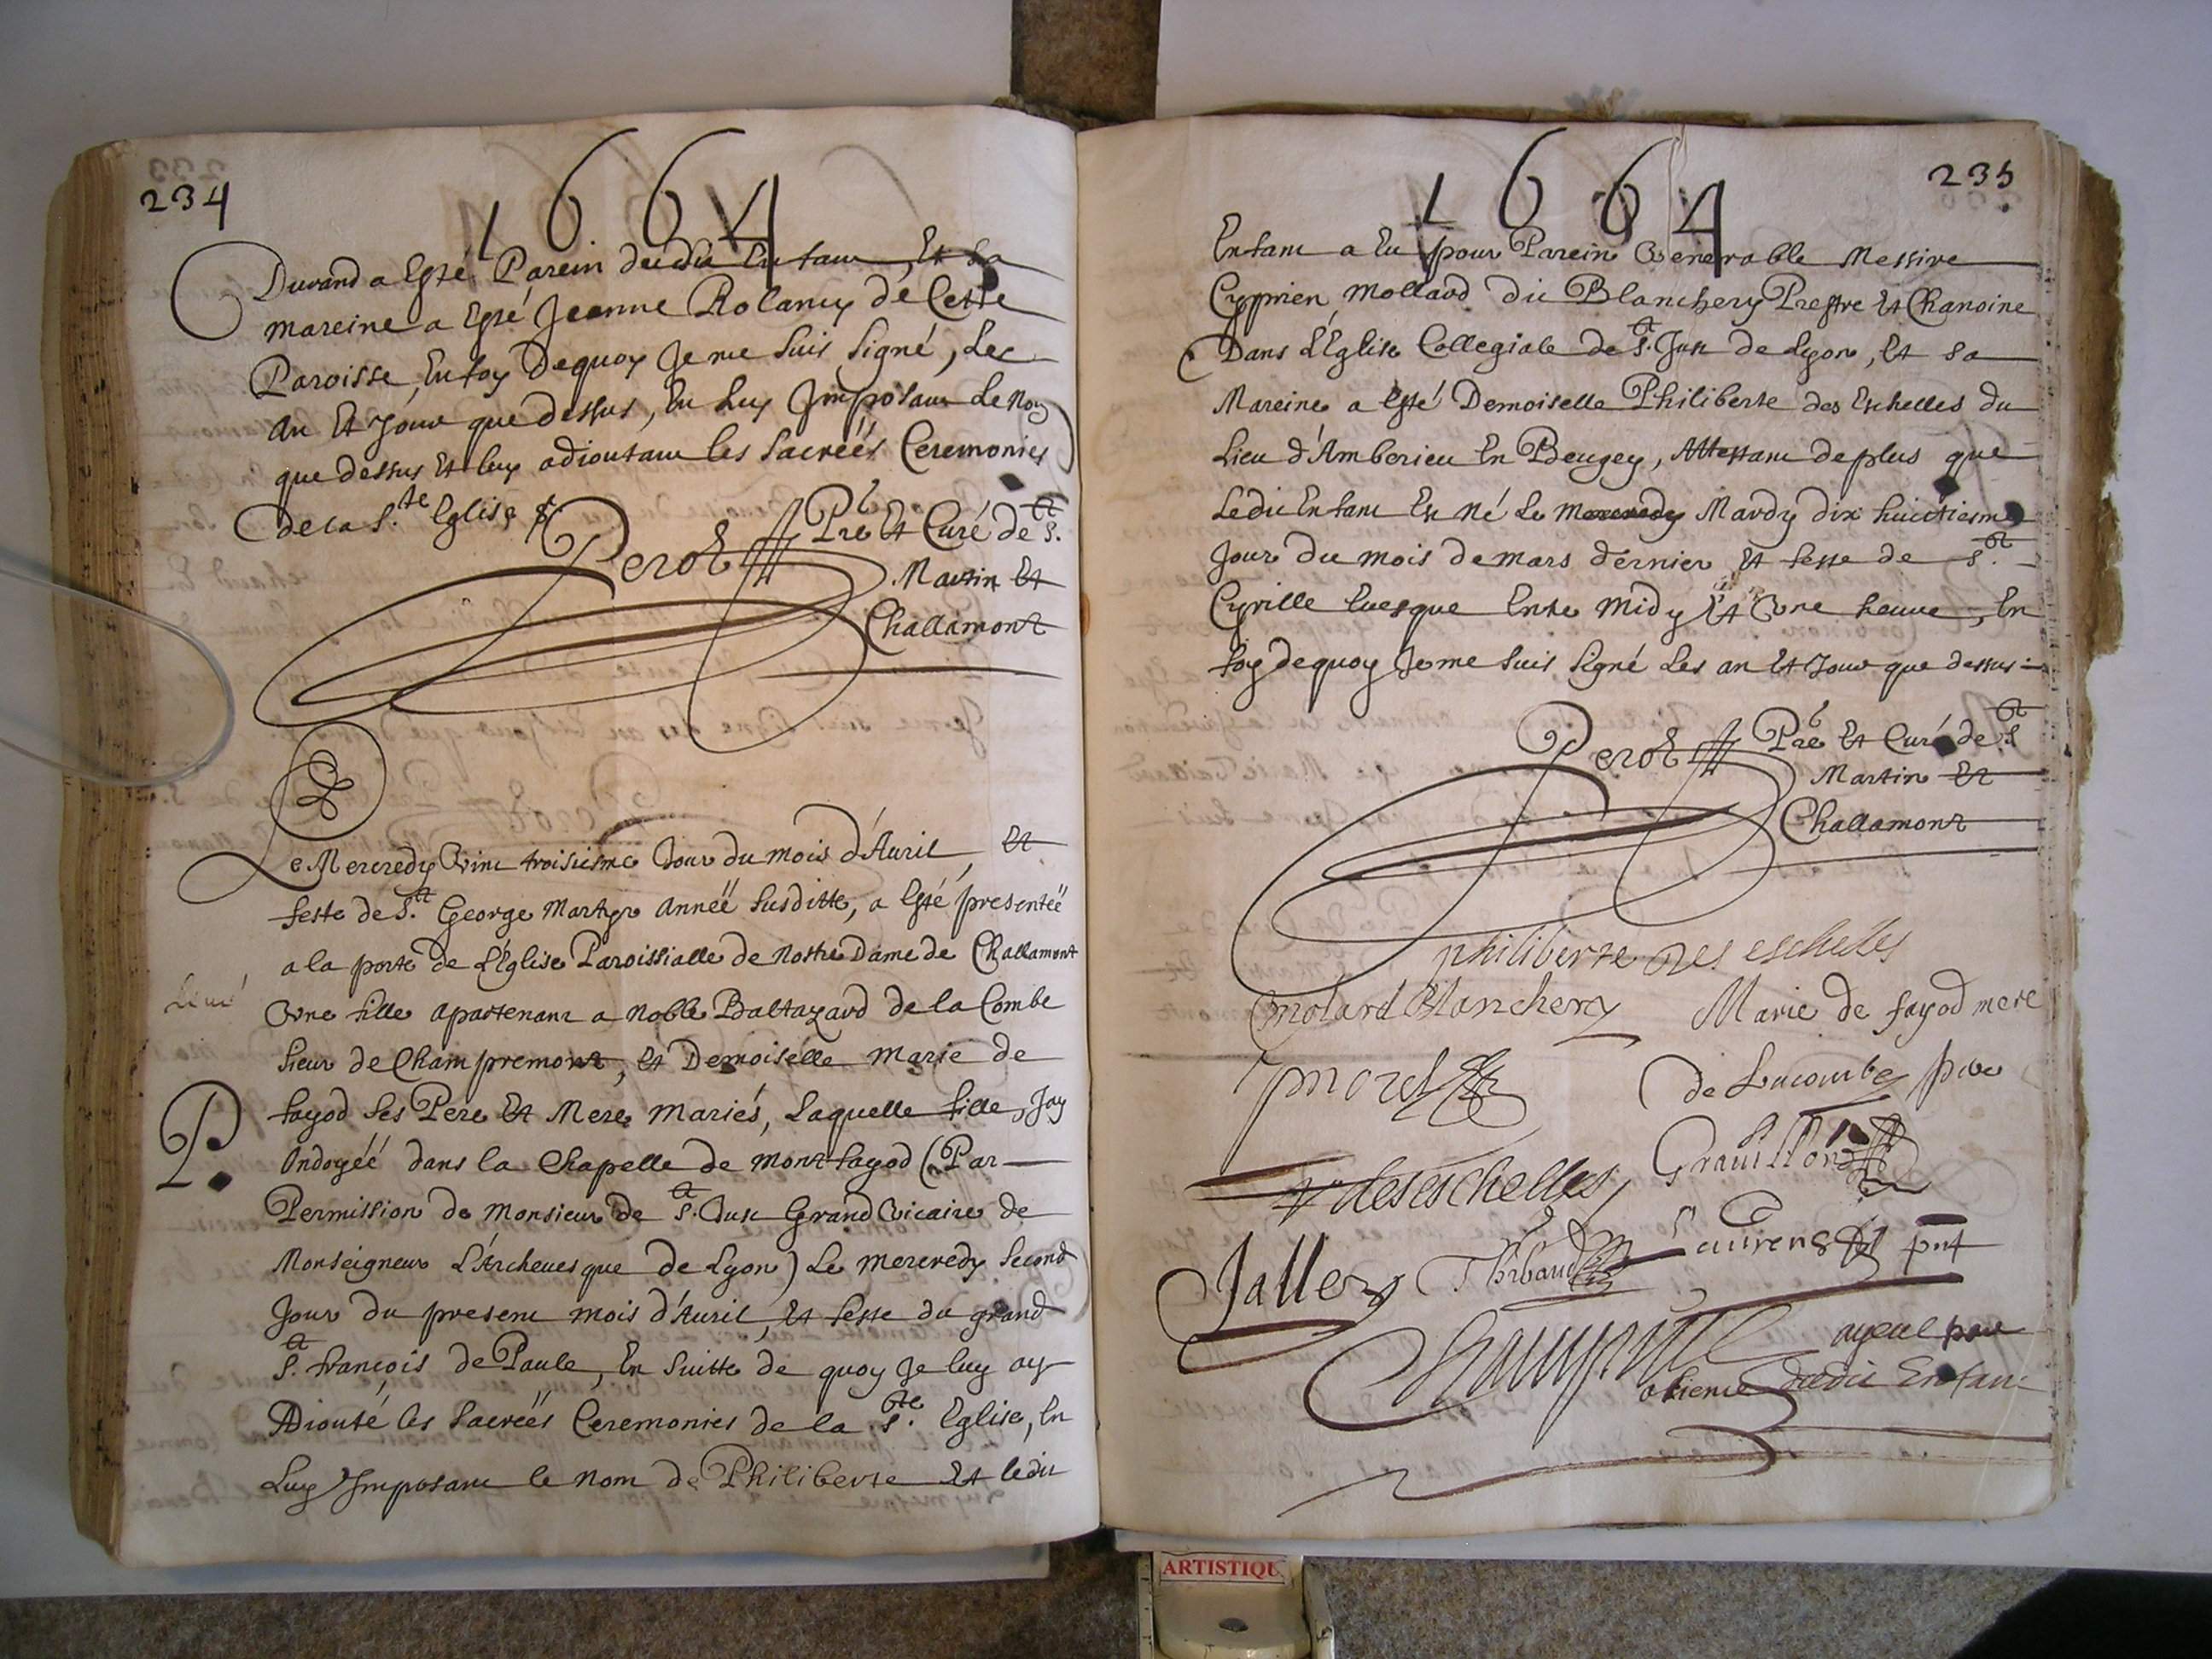 234
1664
Durand a Esté Parein dudit Enfant, Et sa
mareine a Esté Jeanne Rolancy de Cette
Paroisse, En foy dequoy Je me suis signé, Les
an Et Jour que dessus, En Luy Jmposant Le Nom
que dessus Et luy adioutant les Sacréés Ceremonies
de la S.te Eglise
Perot Pre Et Curé de S.t
Martin Et
Challamont
Le Mercredy Vint troisiesme Jour du mois d'Auril, Et
feste de S.t George Martyr Annéë susditte, a Esté presentéë
a la porte de L'Eglise Paroissialle de Nostre Dame de Challamont
Vne fille apartenant a Noble Baltazard de la Combe
sieur de Champremont, Et Demoiselle Marie de
fayod ses Pere Et Mere mariés, Laquelle fille, Jay
Ondoyéé dans la Chapelle de Montfayod (Par
Permission de Monsieur de S.t Just Grand Vicaire de
Monseigneur L'Archeuesque de Lyon) Le Mercredy second
Jour du present mois d'Auril, Et feste du grand
S.t françois de Paule, En suitte de quoy Je luy ay
Adiouté les Sacréës Ceremonies de la S.te Eglise, En
Luy Jmposant le nom de Philiberte Et ledit
P.
235
1664
Enfant a Eu pour Parein Venerable Messire
Cyprien Mollard dit Blanchery Prestre Et Chanoine
Dans L'Eglise Collegiale de S.t Just de Lyon, Et sa
Mareine a Esté Demoiselle Philiberte des Eschelles du
Lieu d'Amberieu En Beugey, Attestant de plus que
Ledit Enfant Est Né Le Mercredy Mardy dix huictiesme
Jour du mois de mars dernier Et feste de S.t
Cyrille Euesque Entre Midy Et Vne heure, En
foy dequoy Je me suis signé Les an Et Jour que dessus
Perot Pre Et Curé de S.t
Martin Et
Challamont
philiberte des escheles
molard Blanchery Marie de fayod mere
morel de Lacombe pere
deseschelles Grauillon
Jallery Thibaud Laurens pnt
ayeul pa
dudit Enfant
ARTISTIQU